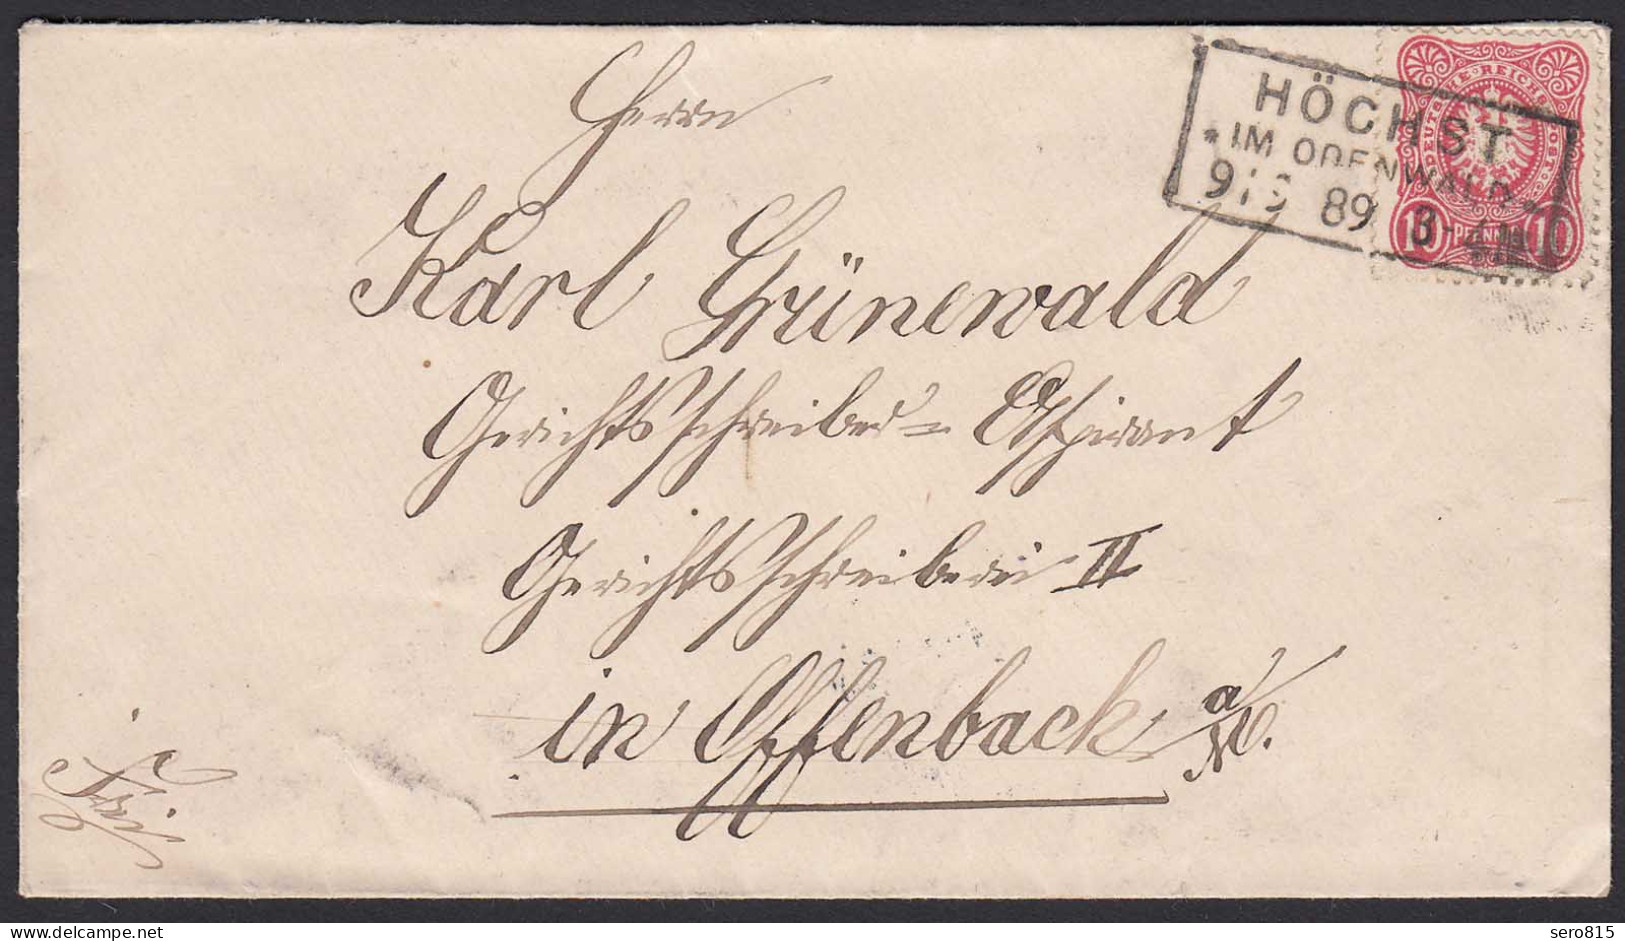 Herrn
Karl Grünewald
Gerichtsschreiber=Aspirant
Gerichtsschreiberei II
in Offenbach a/M.
Frei
HÖCHST
* IM ODENWALD *
89 3-4N
DEUTSCHE REICHS-POST
10 PFENNIG 10
sero815